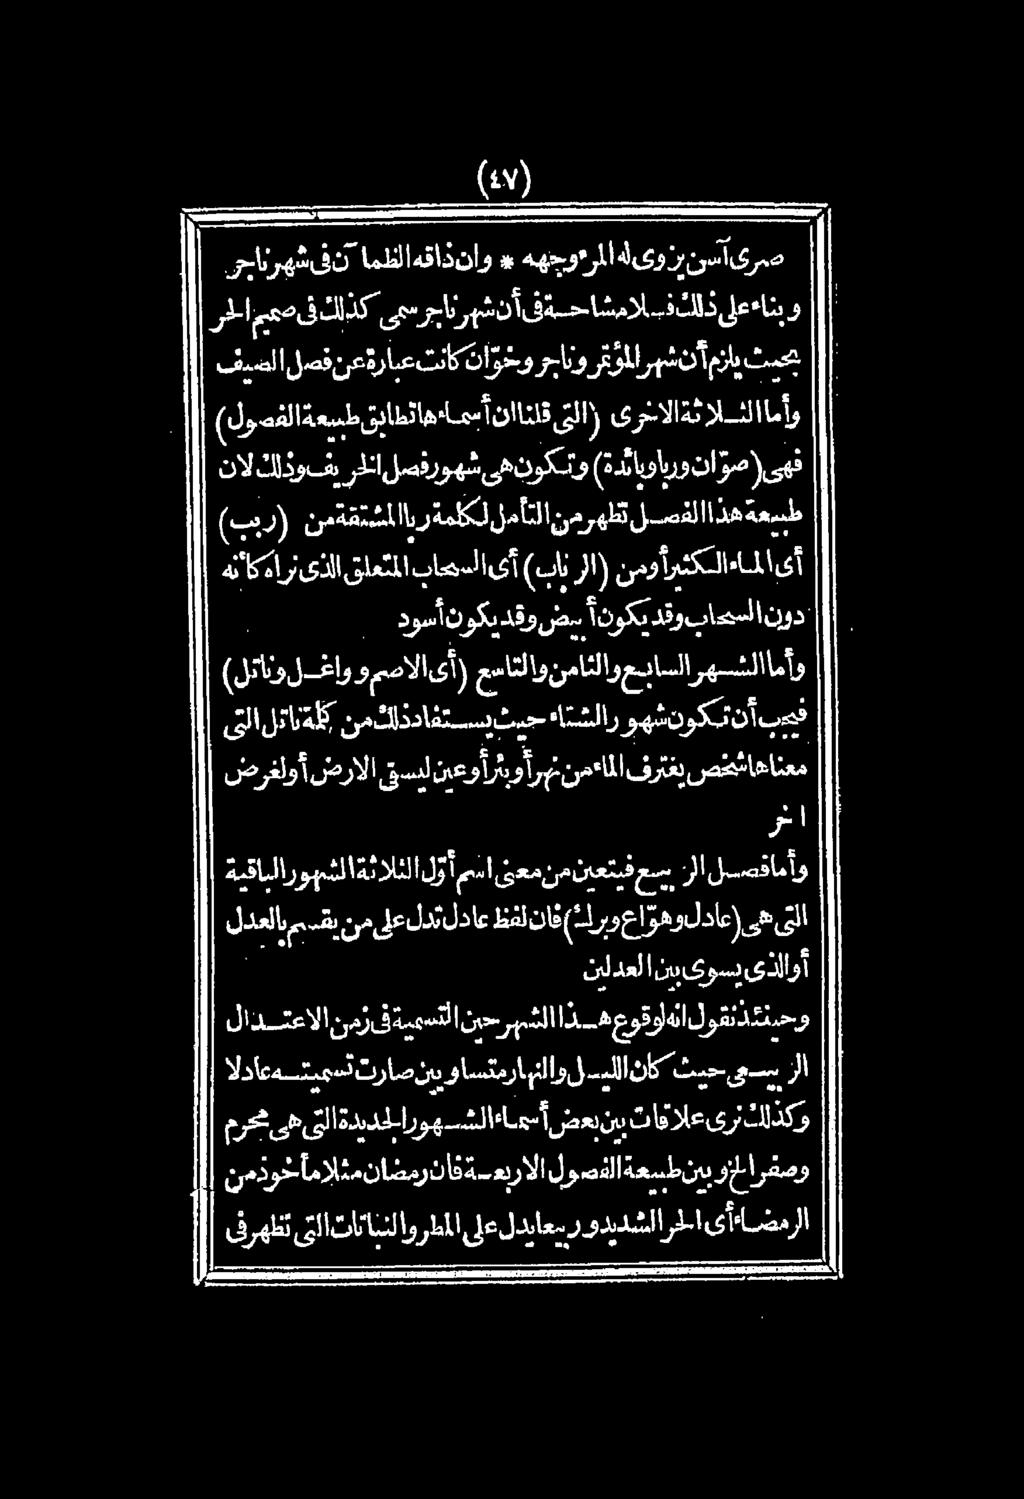 (٤٧)
صرى آسن يزوى له المرء وجهه * وان ذاقه الظمآن فى شهر ناجر
وبناء على ذلك فلا مشاحة فى أن شهر ناجر سمى كذلك فى صميم الحر
بحيث يلزم أن شهر المؤتمر وناجر وخوّان كانت عبارة عن فصل الصيف
وأما الثلاثة الاخرى (التى قلنا ان أسماءها تطابق طبيعة الفصول)
فهى (صوّان وربا وبائدة) وتكون هى شهور فصل الخريف وذلك لان
طبيعة هذا الفصل تظهر من التأمل لكلمة ربا المشتقة من (ربب)
أى الماء الكثير أو من (الرباب) أى السحاب المتعلق الذى نراه كأنه
دون السحاب وقد يكون أبيض وقد يكون أسود
وأما الشهر السابع والثامن والتاسع (أى الاصم وواغل وناتل)
فيجب أن تكون شهور الشتاء حيث يستفاد ذلك من كلمة ناتل التى
معناها شخص يغترف الماء من نهر أو بئر أو عين ليسقى الارض أو لغرض
اخر
وأما فصل الربيع فيتعين من معنى اسم أوّل الثلاثة الشهور الباقية
التى هى (عادل وهوّاع وبرك) فان لفظ عادل تدل على من يقسم بالعدل
أو الذى يسوى بين العدلين
وحينئذ نقول انه لوقوع هذا الشهر حين التسمية فى زمن الاعتدال
الربيعى حيث كان الليل والنهار متساويين صارت تسميته عادلا
وكذلك نرى علاقات بين بعض أسماء الشهور الجديدة التى هى محرم
وصفر الخ وبين طبيعة الفصول الاربعة فان رمضان مثلا مأخوذ من
الرمضاء أى الحر الشديد وربيعا يدل على المطر والنباتات التى تظهر فى